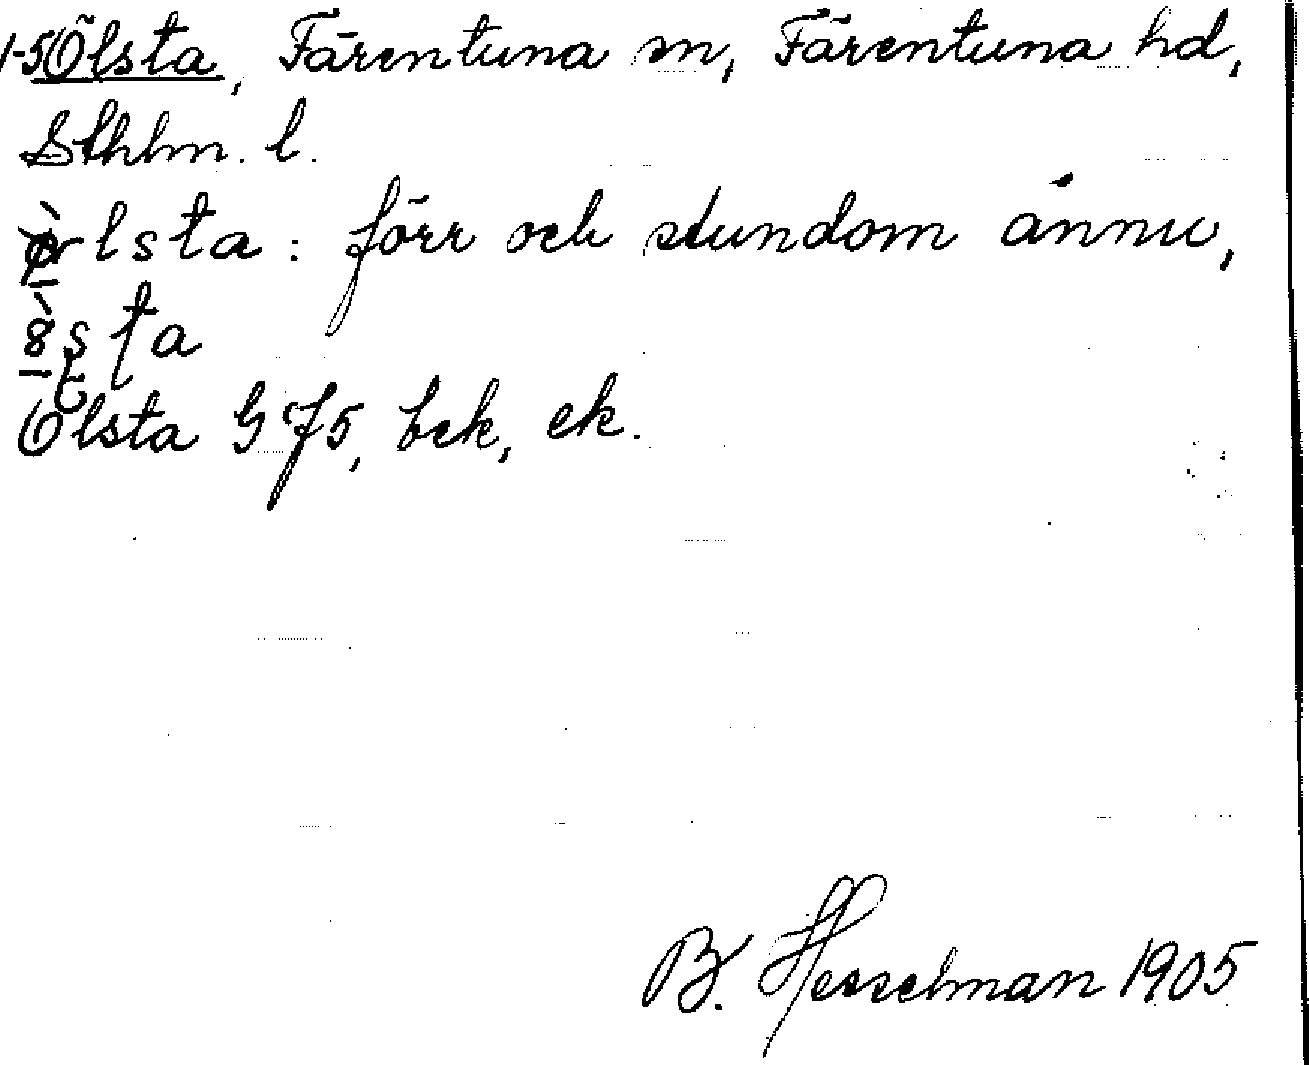 1-5 Ölsta, Färentuna sn, Färentuna hd,
Sthlm. l.
lsta: förr och stundom ännu,
Ölsta G 75, bek, ek.
B. Hesselman 1905